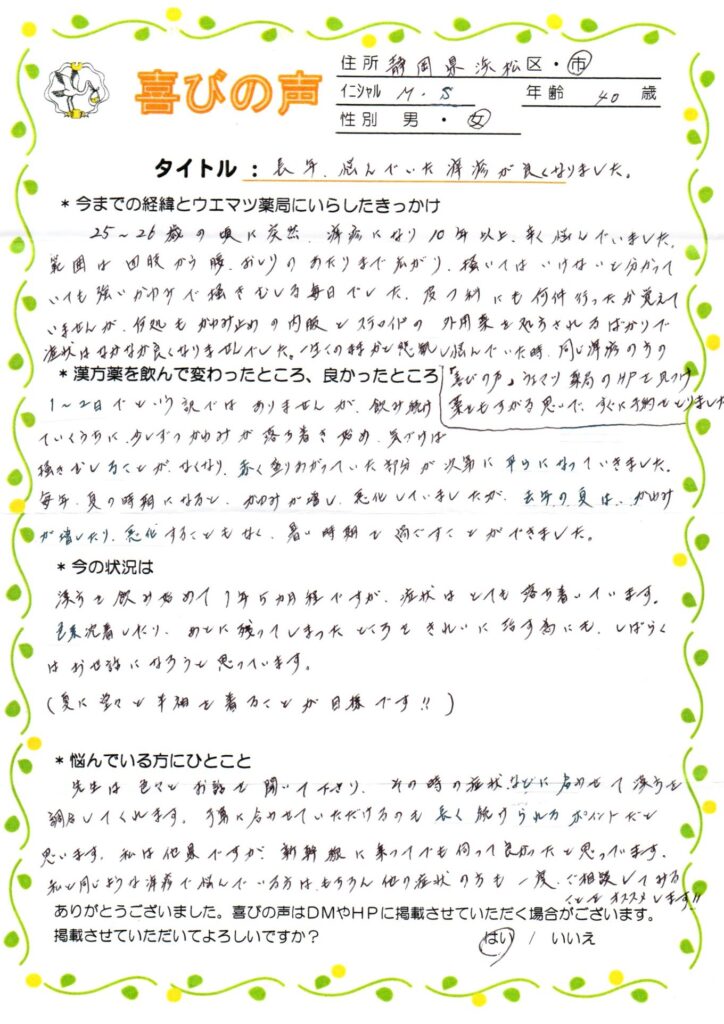 喜びの声
住所 静岡県浜松区・市
イニシャル M・S 年齢 40 歳
性別 男・女
タイトル：長年、悩んでいた痒疹が良くなりました。
*今までの経緯とウエマツ薬局にいらしたきっかけ
25～26歳の頃に突然、痒疹になり10年以上、辛く悩んでいました。
範囲は四肢から腰、おしりのあたりまで広がり、掻いてはいけないと分かって
いても強いかゆみで掻きむしる毎日でした。皮フ科にも何件行ったか覚えて
いませんが、何処もかゆみ止めの内服とステロイドの外用薬を処方されるばかりで
症状はなかなか良くなりませんでした。 悩んでいた時、同じ痒疹の方の
「喜びの声」ウエマツ薬局のHPを見つけ
藁をもすがる思いで、すぐに予約をとりました
*漢方薬を飲んで変わったところ、良かったところ
1～2日でという訳ではありませんが、飲み続け
ていくうちに、少しずつかゆみが落ち着き始め、気づけば
掻きむしることがなくなり、赤く盛りあがっていた部分が次第に平らになっていきました。
毎年、夏の時期になると、かゆみが増し、悪化していましたが、去年の夏は、かゆみ
が増したり、悪化することもなく、暑い時期を過ごすことができました。
*今の状況は
漢方を飲み始めて1年5カ月程ですが、症状はとても落ち着いています。
色素沈着したり、あとに残ってしまったところをきれいに治す為にも、しばらく
はお世話になろうと思っています。
(夏に堂々と半袖を着ることが目標です!!)
*悩んでいる方にひとこと
先生は色々とお話を聞いて下さり、その時の症状などに合わせて漢方を
調合してくれます。予算に合わせていただけるのも長く続けられるポイントだと
思います。私は他県ですが、新幹線に乗ってでも伺って良かったと思っています。
私と同じような痒疹で悩んでいる方は、もちろん他の症状の方も一度、ご相談してみる
ことをオススメします!!
ありがとうございました。喜びの声はDMやHPに掲載させていただく場合がございます。
掲載させていただいてよろしいですか？ はい / いいえ